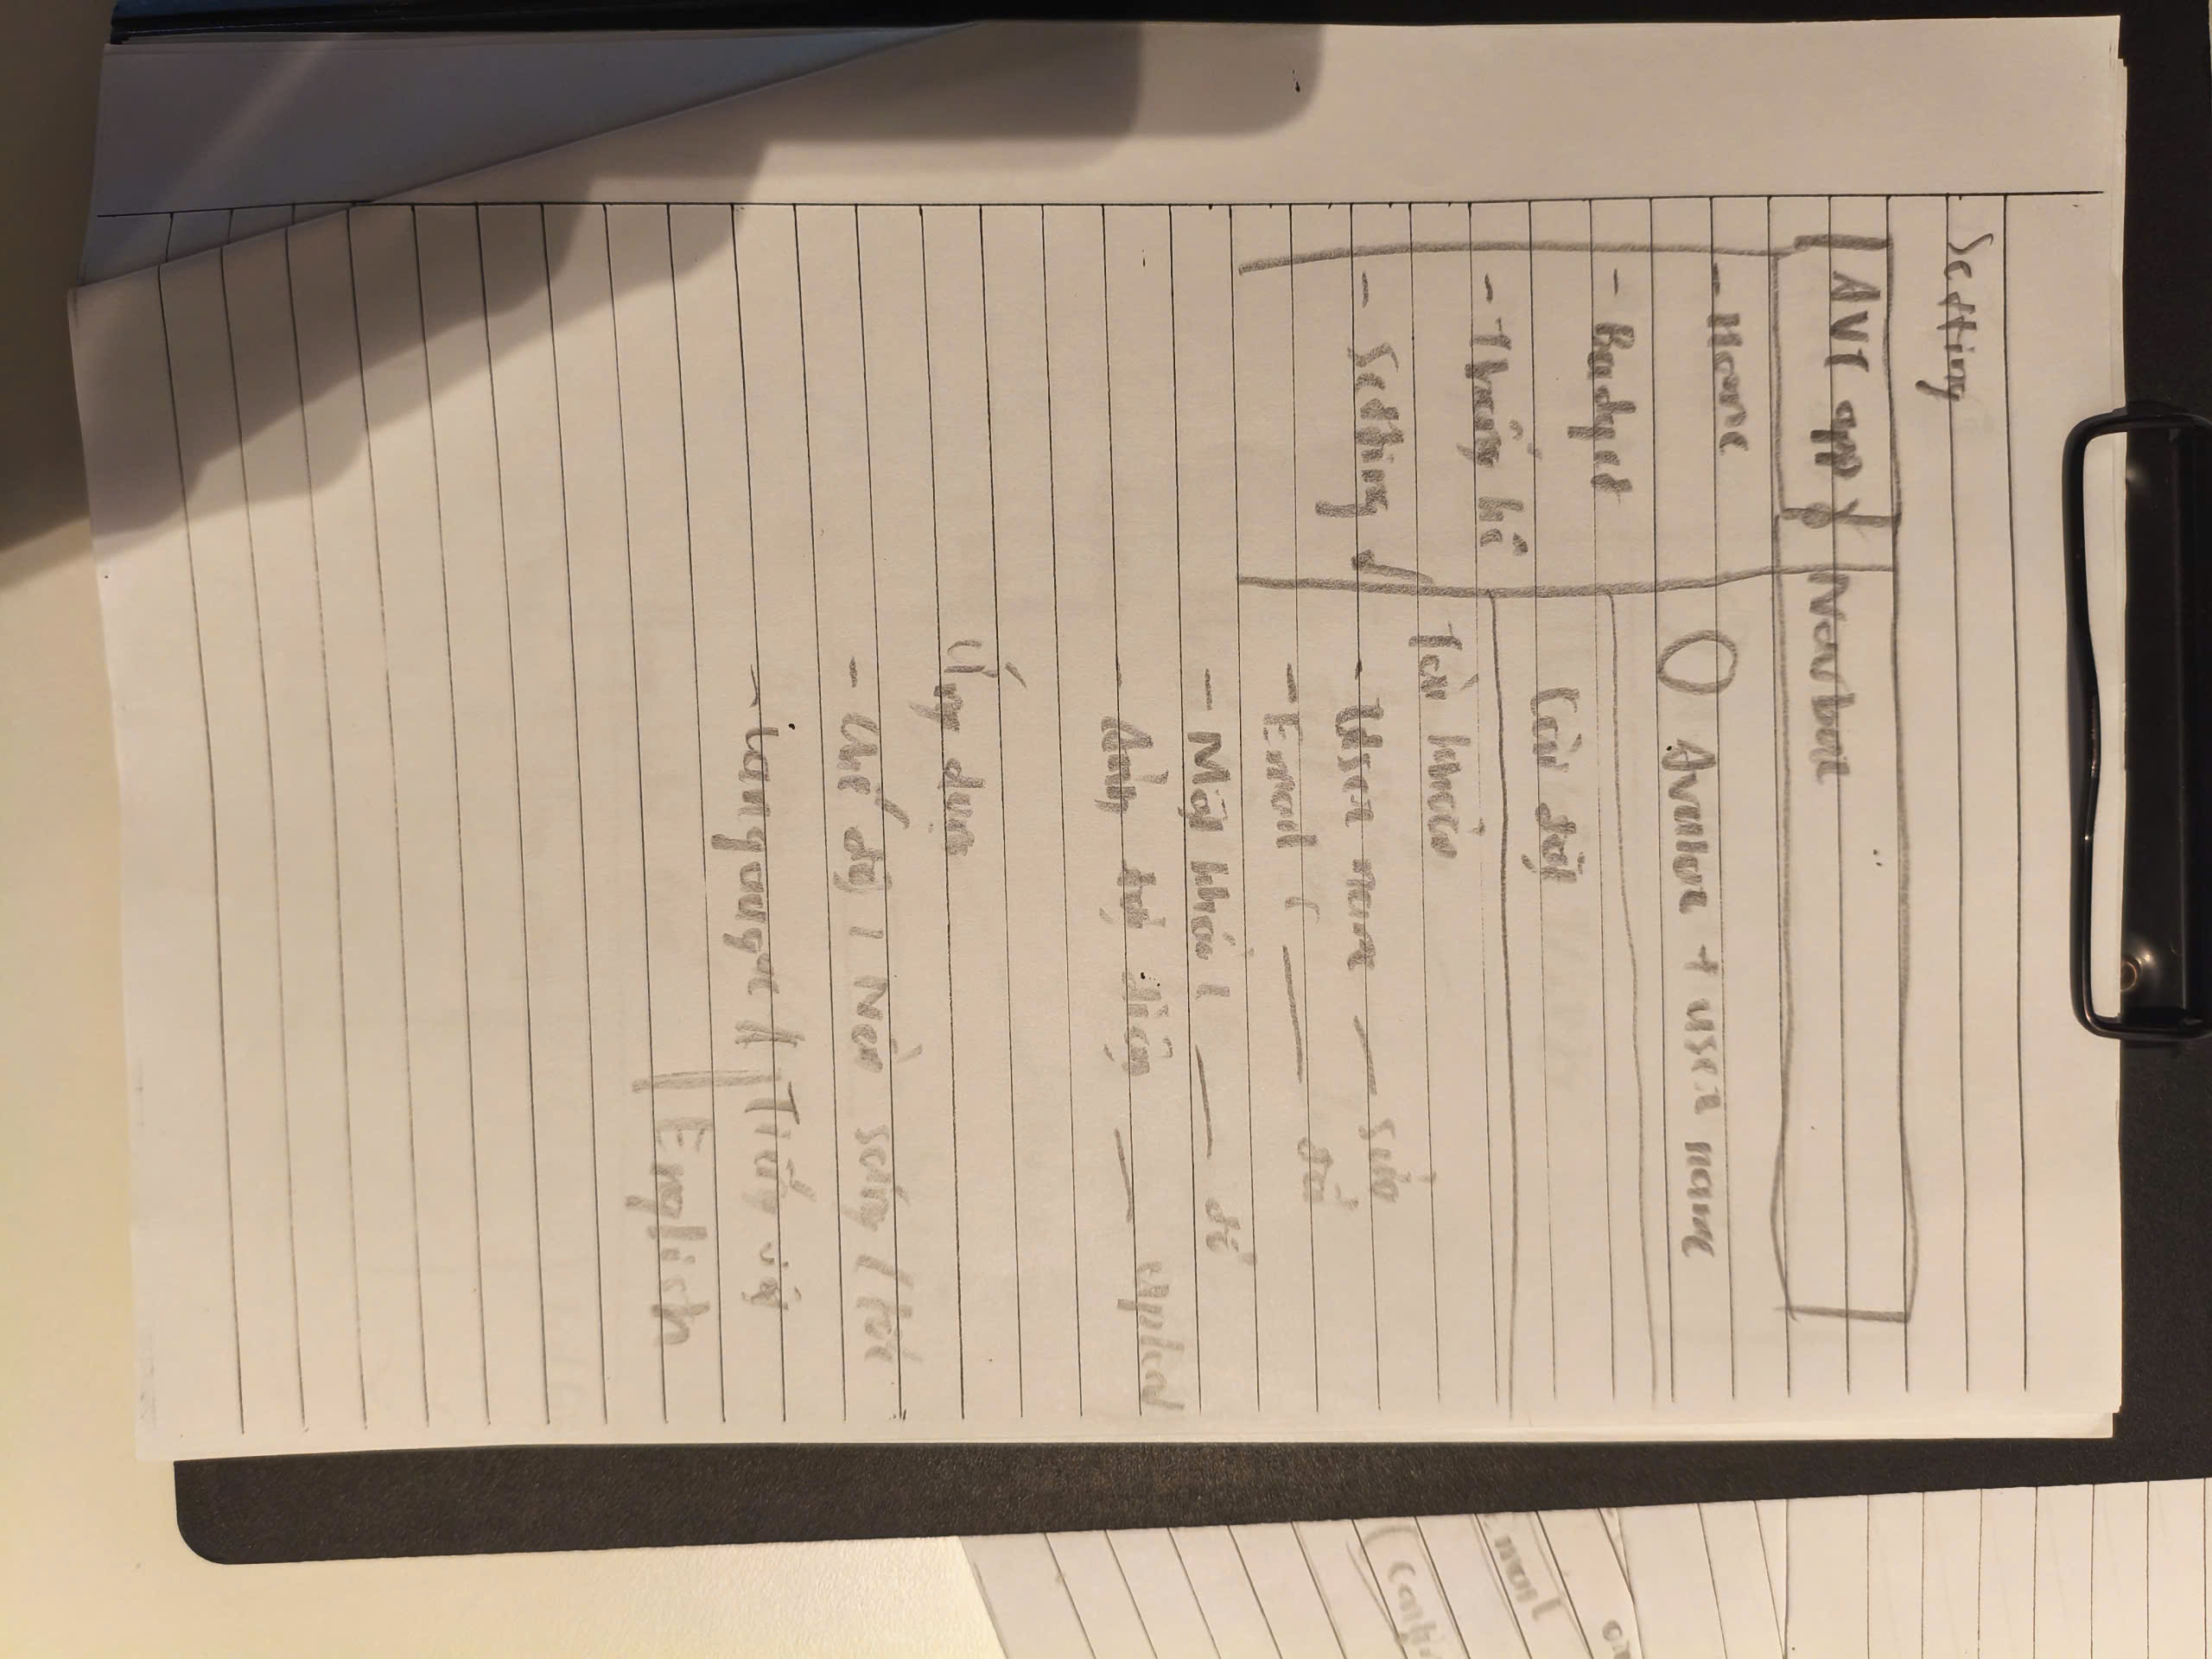 Setting
AVT app
Navbar
- Home
- Budget
- Thống kê
- Setting
Avatar + user name
Cài đặt
Tài khoản
- User name — sửa
- Email : — đổi
- Mật khẩu : — đổi
- Ảnh đại diện — upload
Ứng dụng
- Chế độ : Nền sáng / tối
- Language
Tiếng việt
English